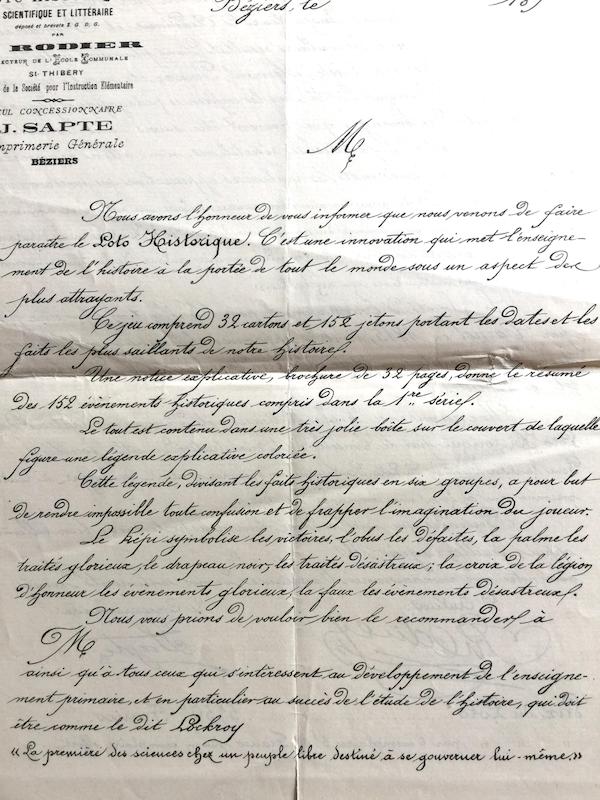 SCIENTIFIQUE ET LITTÉRAIRE
déposé et breveté S. G. D. G.
PAR
RODIER
ECTEUR DE L'ÉCOLE COMMUNALE
St-THIBERY
de la Société pour l'Instruction Elémentaire
UL CONCESSIONNAIRE
J. SAPTE
mprimerie Générale
BÉZIERS
Béziers, le 189
M
Nous avons l'honneur de vous informer que nous venons de faire
paraître le Loto Historique. C'est une innovation qui met l'enseigne-
ment de l'histoire à la portée de tout le monde sous un aspect des
plus attrayants.
Ce jeu comprend 32 cartons et 152 jetons portant les dates et les
faits les plus saillants de notre histoire.
Une notice explicative, brochure de 32 pages, donne le résumé
des 152 évènements historiques compris dans la 1re série.
Le tout est contenu dans une très jolie boîte sur le couvert de laquelle
figure une légende explicative coloriée.
Cette légende, divisant les faits historiques en six groupes, a pour but
de rendre impossible toute confusion et de frapper l'imagination du joueur.
Le képi symbolise les victoires, l'obus les défaites, la palme les
traités glorieux, le drapeau noir, les traités désastreux; la croix de la légion
d'honneur les évènements glorieux, la faux les évènements désastreux.
Nous vous prions de vouloir bien le recommander à
M
ainsi qu'à tous ceux qui s'intéressent au développement de l'enseigne-
ment primaire, et en particulier au succès de l'étude de l'histoire, qui doit
être comme le dit Lockroy
«La première des sciences chez un peuple libre destiné à se gouverner lui-même.»